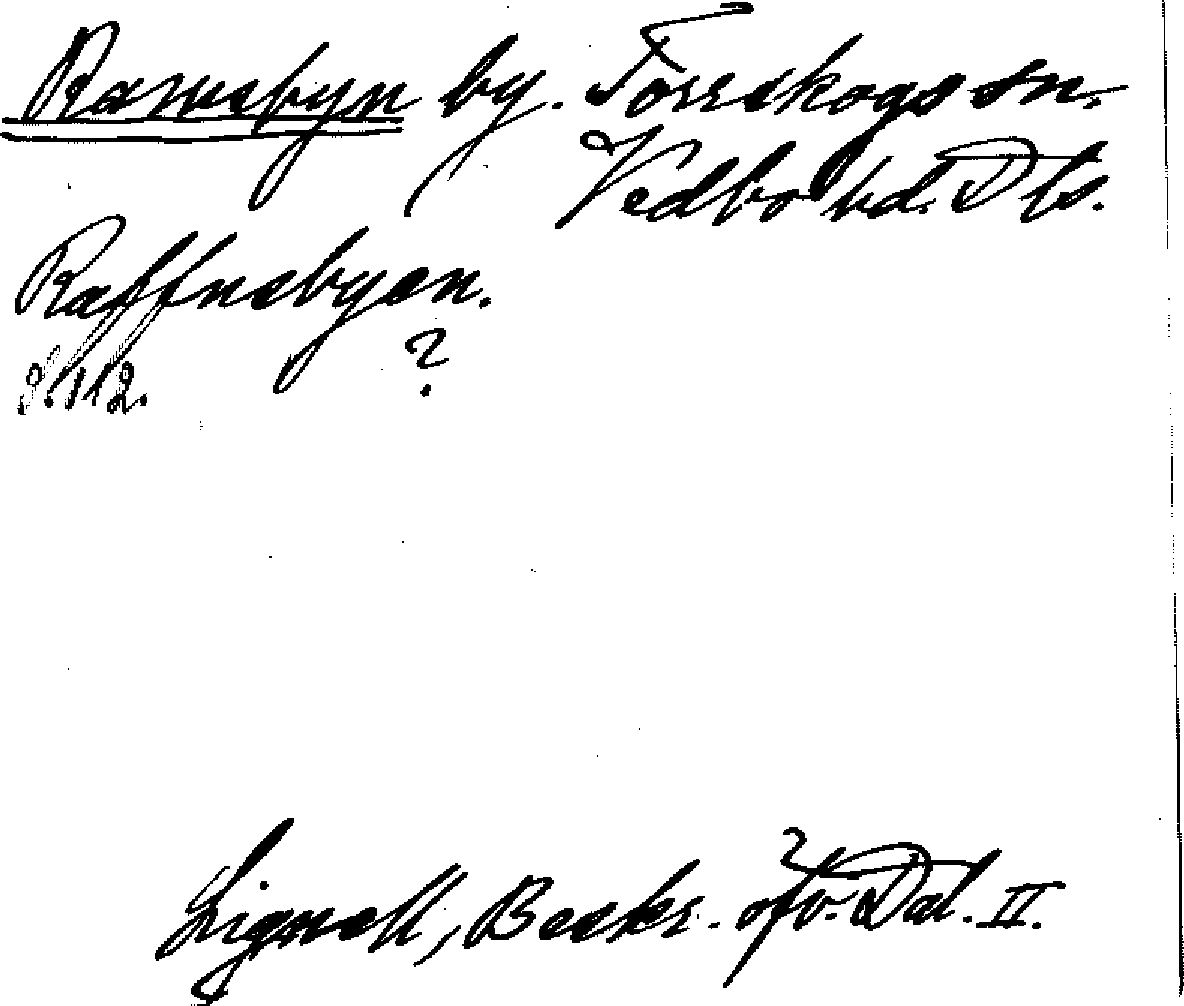 Ramsbyn by. Torrskogs sn.
Vedbo hd. Dls.
Raffnsbyen.
S. 112. ?
Lignell, Beskr. öfv. Dal. II.